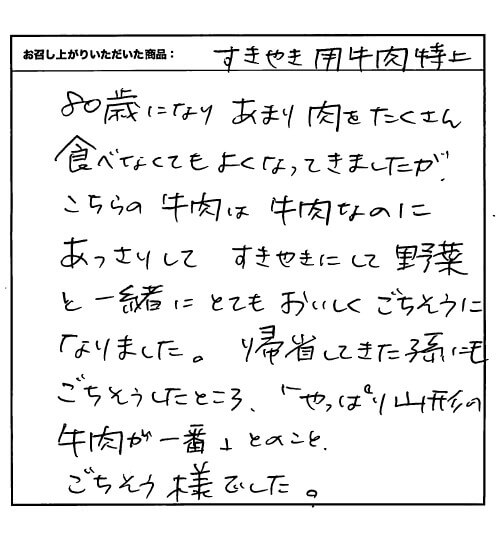 お召し上がりいただいた商品： すきやき用牛肉特上
80歳になり あまり肉をたくさん
食べなくてもよくなってきましたが、
こちらの牛肉は牛肉なのに
あっさりして すきやきにして野菜
と一緒にとてもおいしくごちそうに
なりました。帰省してきた孫にも
ごちそうしたところ、「やっぱり山形の
牛肉が一番」とのこと、
ごちそう様でした。